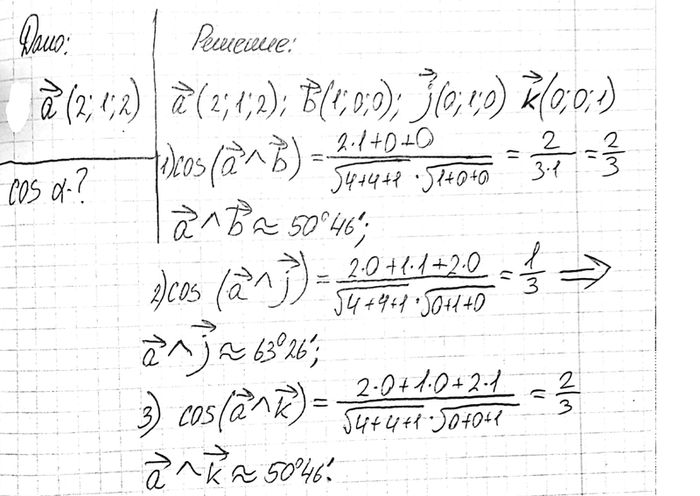 Дано:
a⃗(2; 1; 2)
cos α-?
Решение:
a⃗(2; 1; 2); b⃗(1; 0; 0); j⃗(0; 1; 0) k⃗(0; 0; 1)
1) cos(a⃗ ∧ b⃗) = (2·1+0+0)/(√4+4+1 · √1+0+0) = 2/(3·1) = 2/3
a⃗ ∧ b⃗ ≈ 50°46′;
2) cos (a⃗ ∧ j⃗) = (2·0+1·1+2·0)/(√4+4+1 · √0+1+0) = 1/3 ⟹
a⃗ ∧ j⃗ ≈ 63°26′;
3) cos(a⃗ ∧ k⃗) = (2·0+1·0+2·1)/(√4+4+1 · √0+0+1) = 2/3
a⃗ ∧ k⃗ ≈ 50°46′.